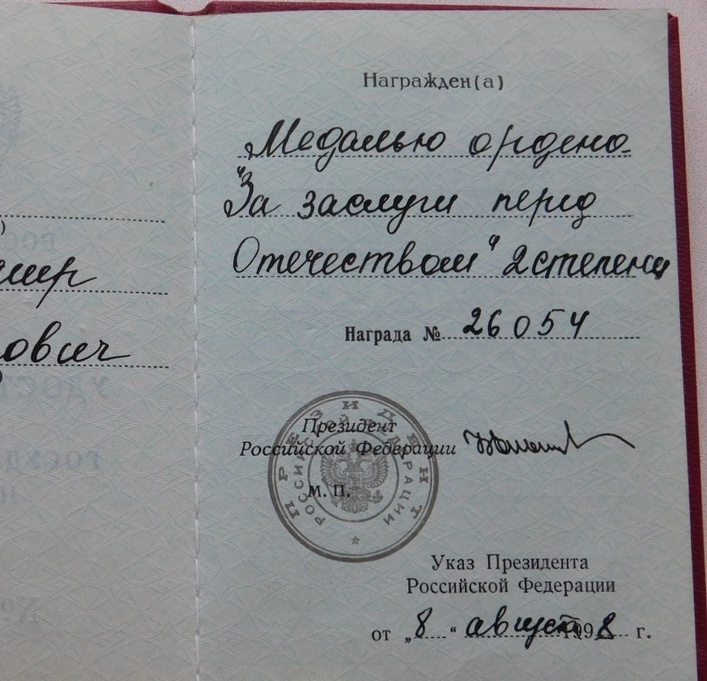 )
овсич
Награжден(а)
Медалью ордена
"За заслуги перед
Отечеством" 2 степени
Награда № 26054
Президент
Российской Федерации
М. П.
ПРЕЗИДЕНТ
РОССИЙСКОЙ ФЕДЕРАЦИИ
Указ Президента
Российской Федерации
от „8“ август 1998 г.